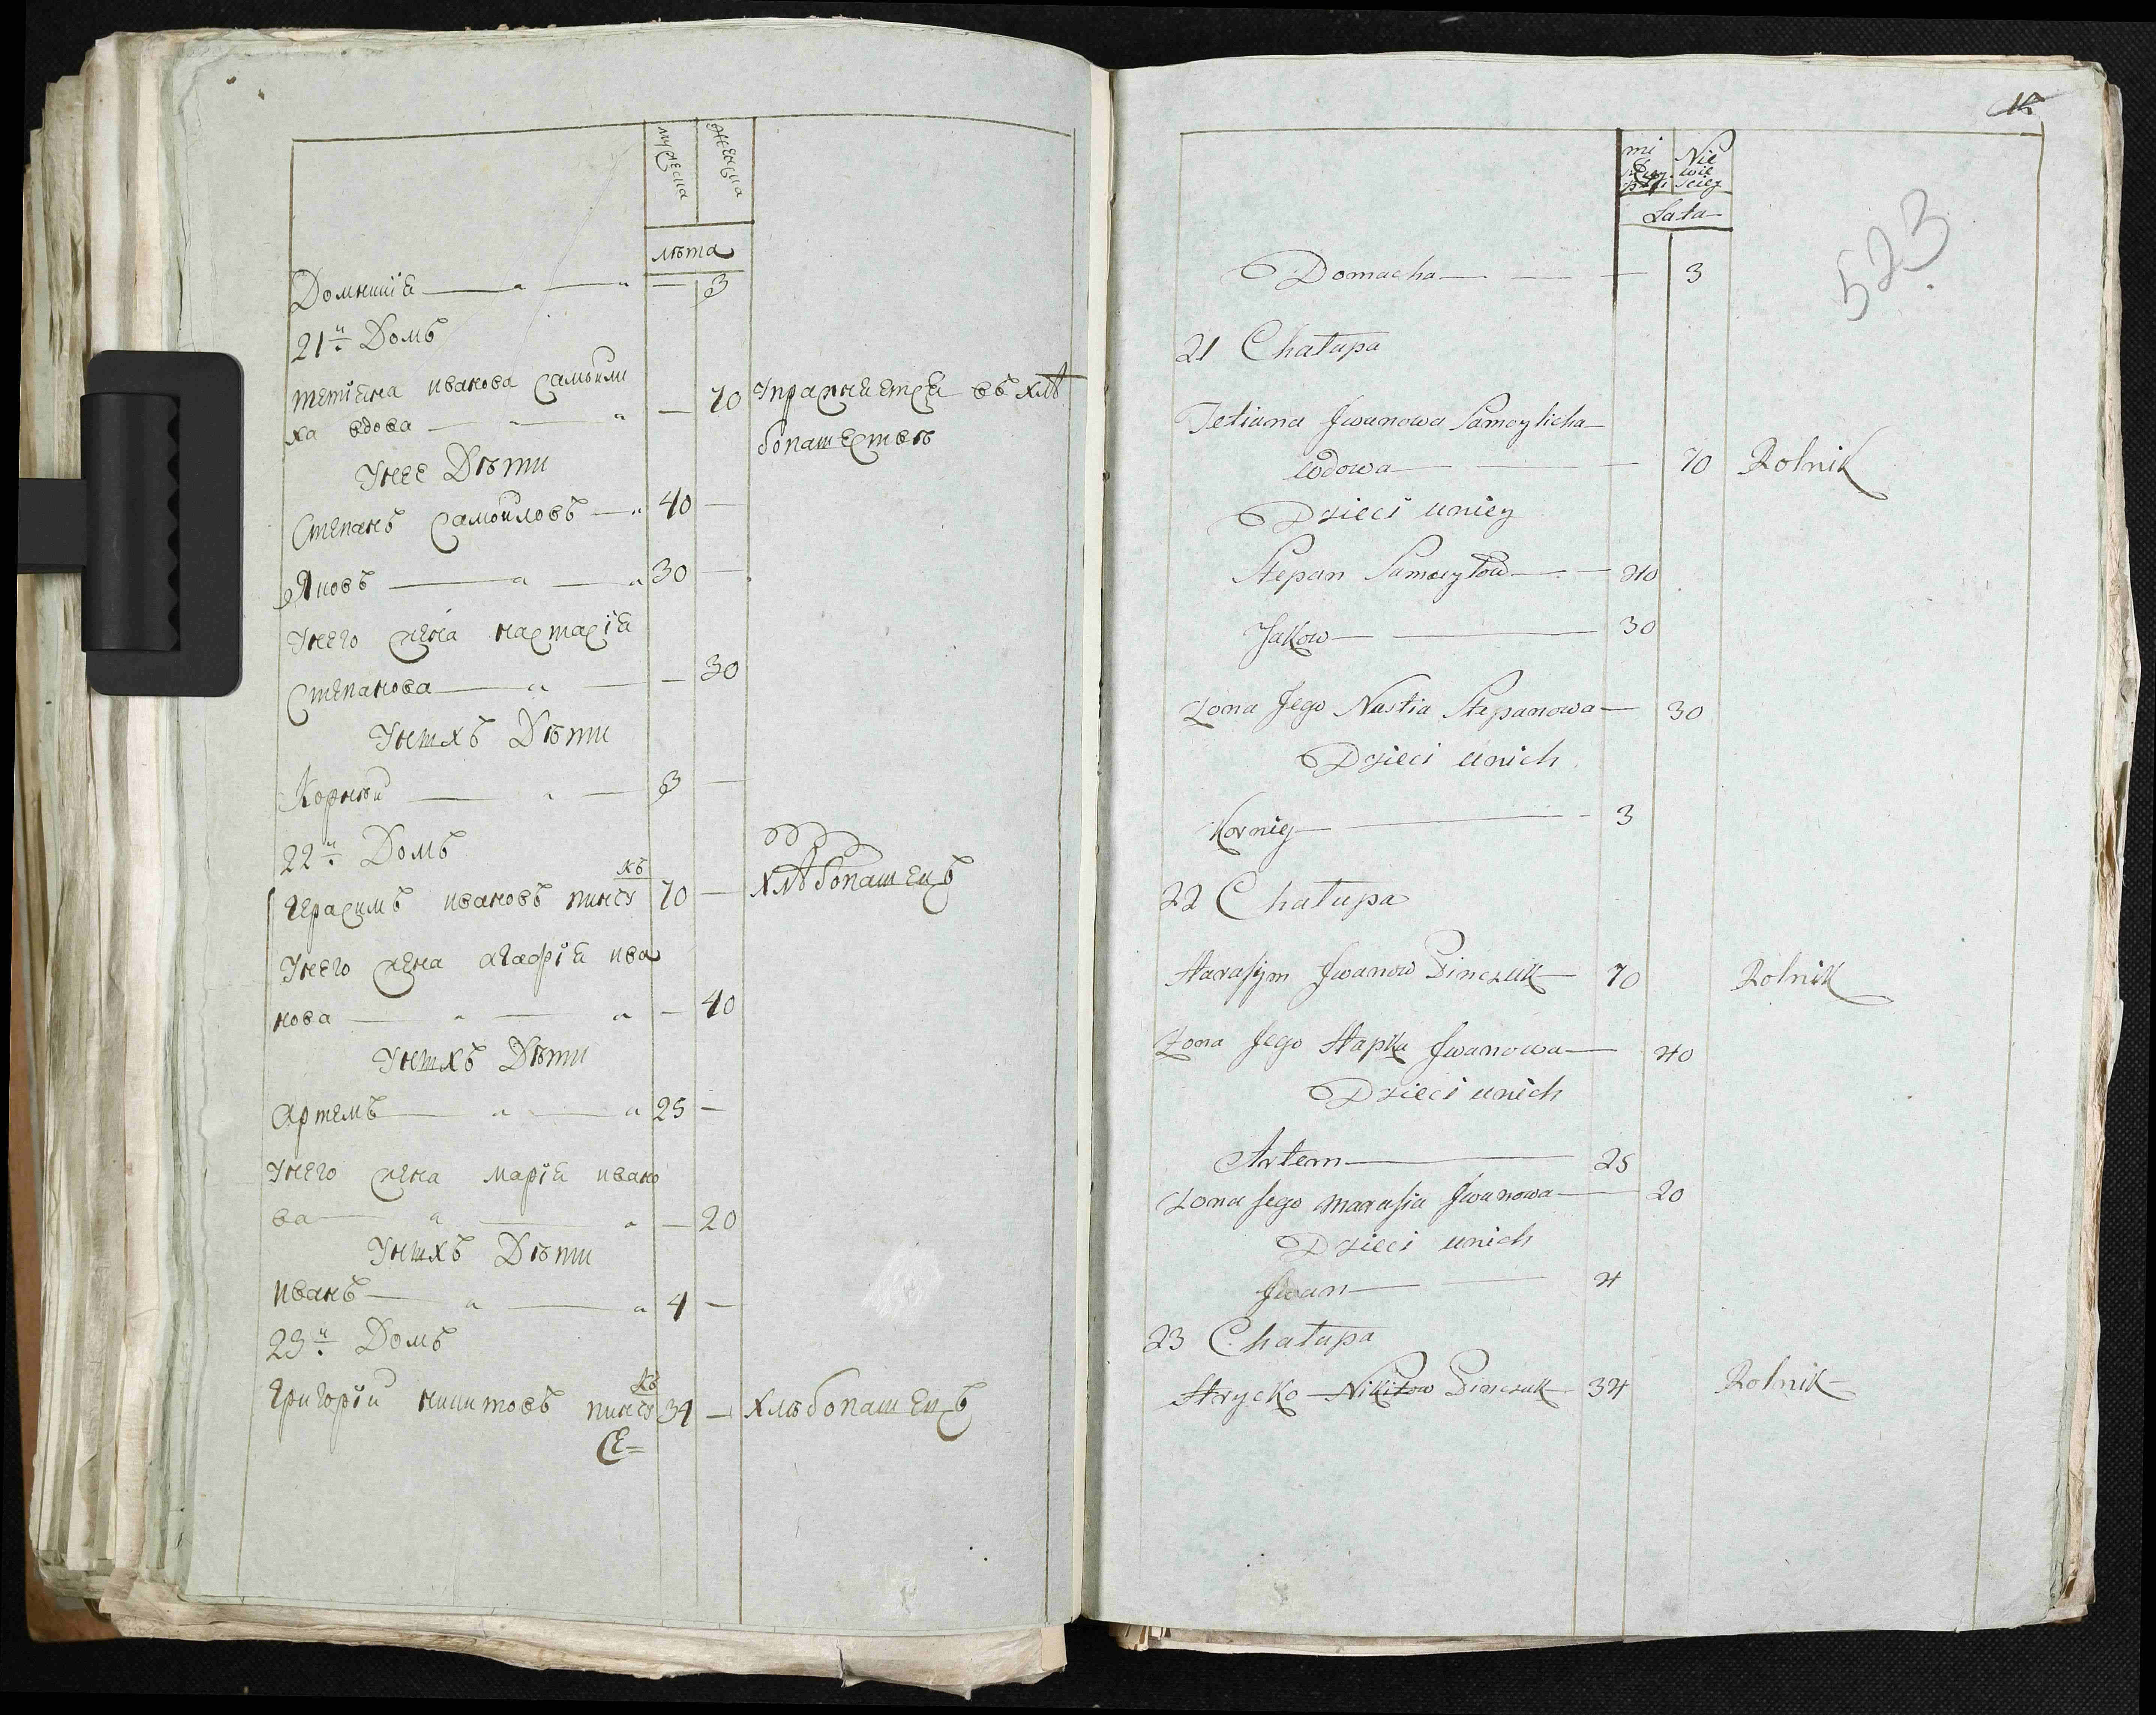 мужеска женска
лѣта
Домникiя — — — 3
21й Домъ
тетiяна иванова самоили
ха вдова — — — 70 Упражняется въ хлѣ
бопашествѣ
У нее Дѣти
Степанъ Самойловъ — 40 —
Яковъ — — 30 —
У него жена настасiя
Степанова — — — 30
У нихъ Дѣти
Корнѣй — — 3 —
22й Домъ
Герасимъ ивановъ пинчукъ 70 — хлѣбопашецъ
У него жена агафiя ива
нова — — — 40
У нихъ Дѣти
Артемъ — — 25 —
У него жена марiя ивано
ва — — — 20
У нихъ Дѣти
иванъ — — 4 —
23й Домъ
Григорiй никитовъ пинчукъ 34 — хлѣбопашецъ
Nie wie sciey
Lata
523
Domacha — — — 3
21 Chałupa
Tetiana Jwanowa Samoylicha
wdowa — — — 70 Rolnik
Dzieci uniey
Stepan Samoyłow — — 40
Jakow — — 30
Zona Jego Nastia Stepanowa — 30
Dzieci unich
Korniey — — 3
22 Chałupa
Harasym Jwanow Pinczuk — 70 Rolnik
Zona Jego Hapka Jwanowa — 40
Dzieci unich
Artem — 25
Zona Jego Marusia Jwanowa — 20
Dzieci unich
Jwan — — 4
23 Chałupa
Hrycko Nikitow Pinczuk — 34 Rolnik